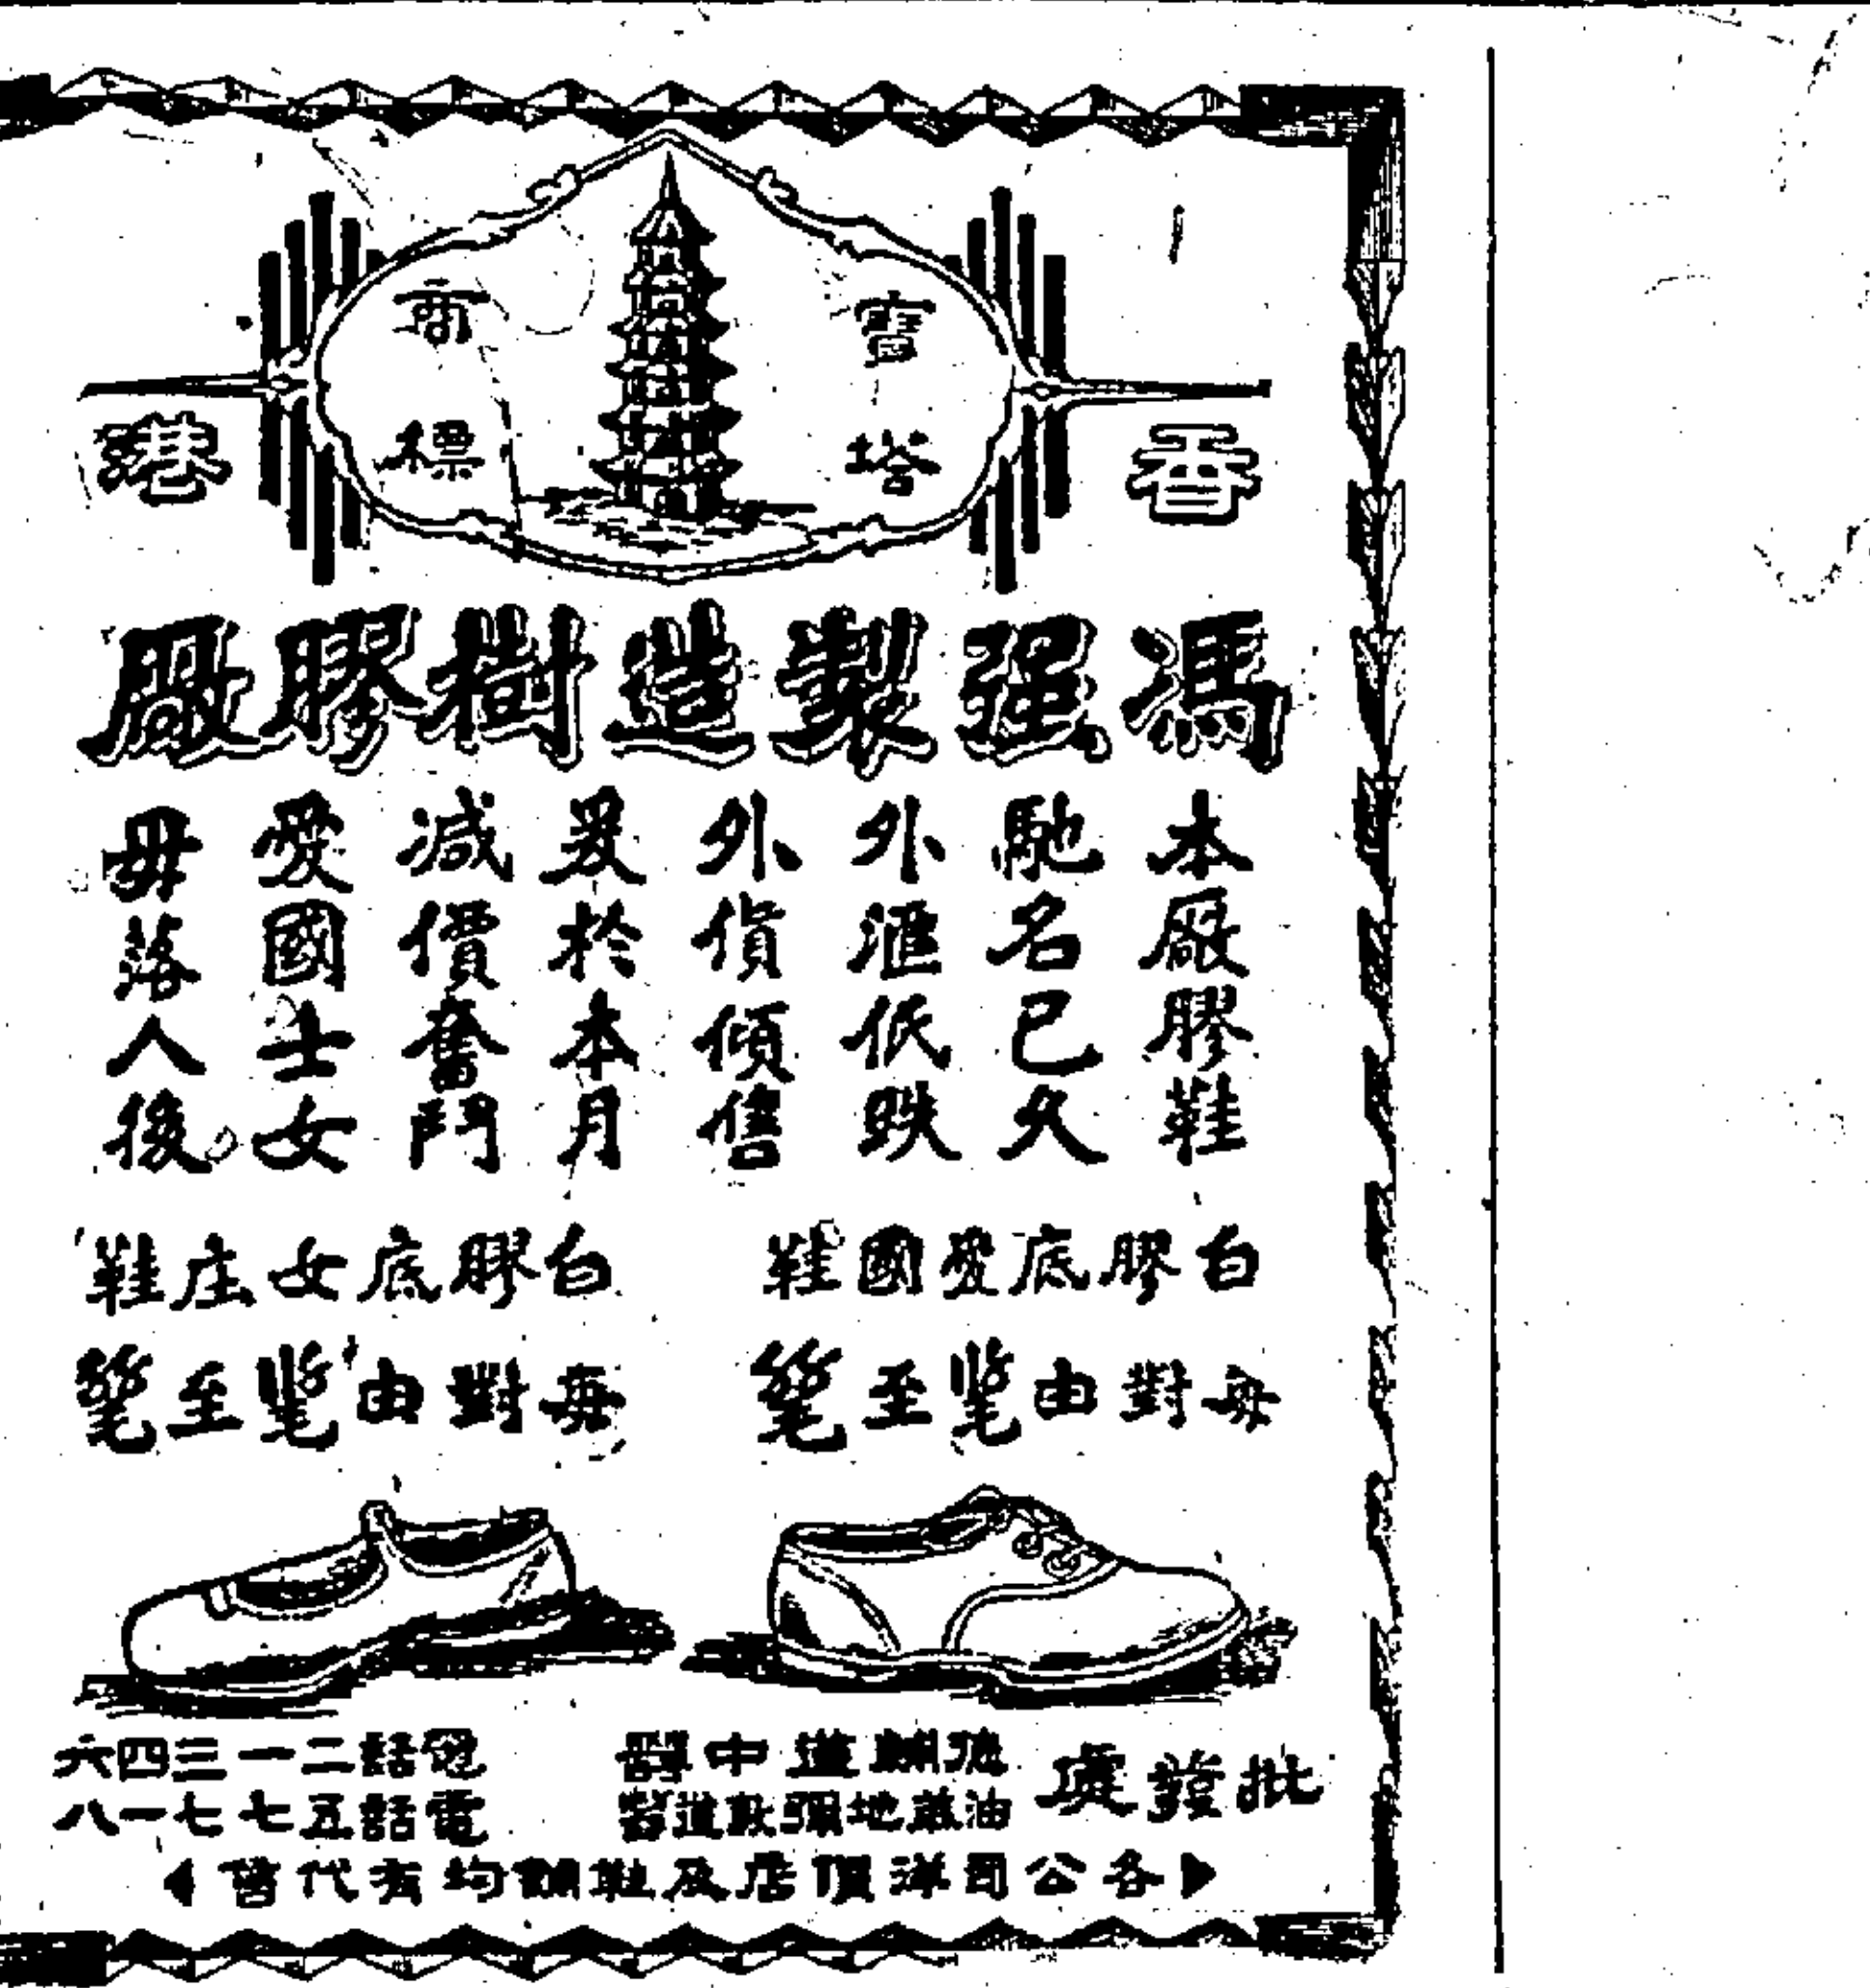 寶塔
商標
香港
馮强製造樹膠廠
本廠膠鞋
馳名已久
外滙低跌
外貨傾售
爰於本月
減價奮鬥
愛國士女
毋落人後
白膠底愛國鞋
每對由毫至毫
白膠底女庄鞋
每對由毫至毫
批發處
德輔道中
油蔴地彌敦道
電話二一三四六
電話五七七一八
各公司洋貨店及鞋舖均有代售